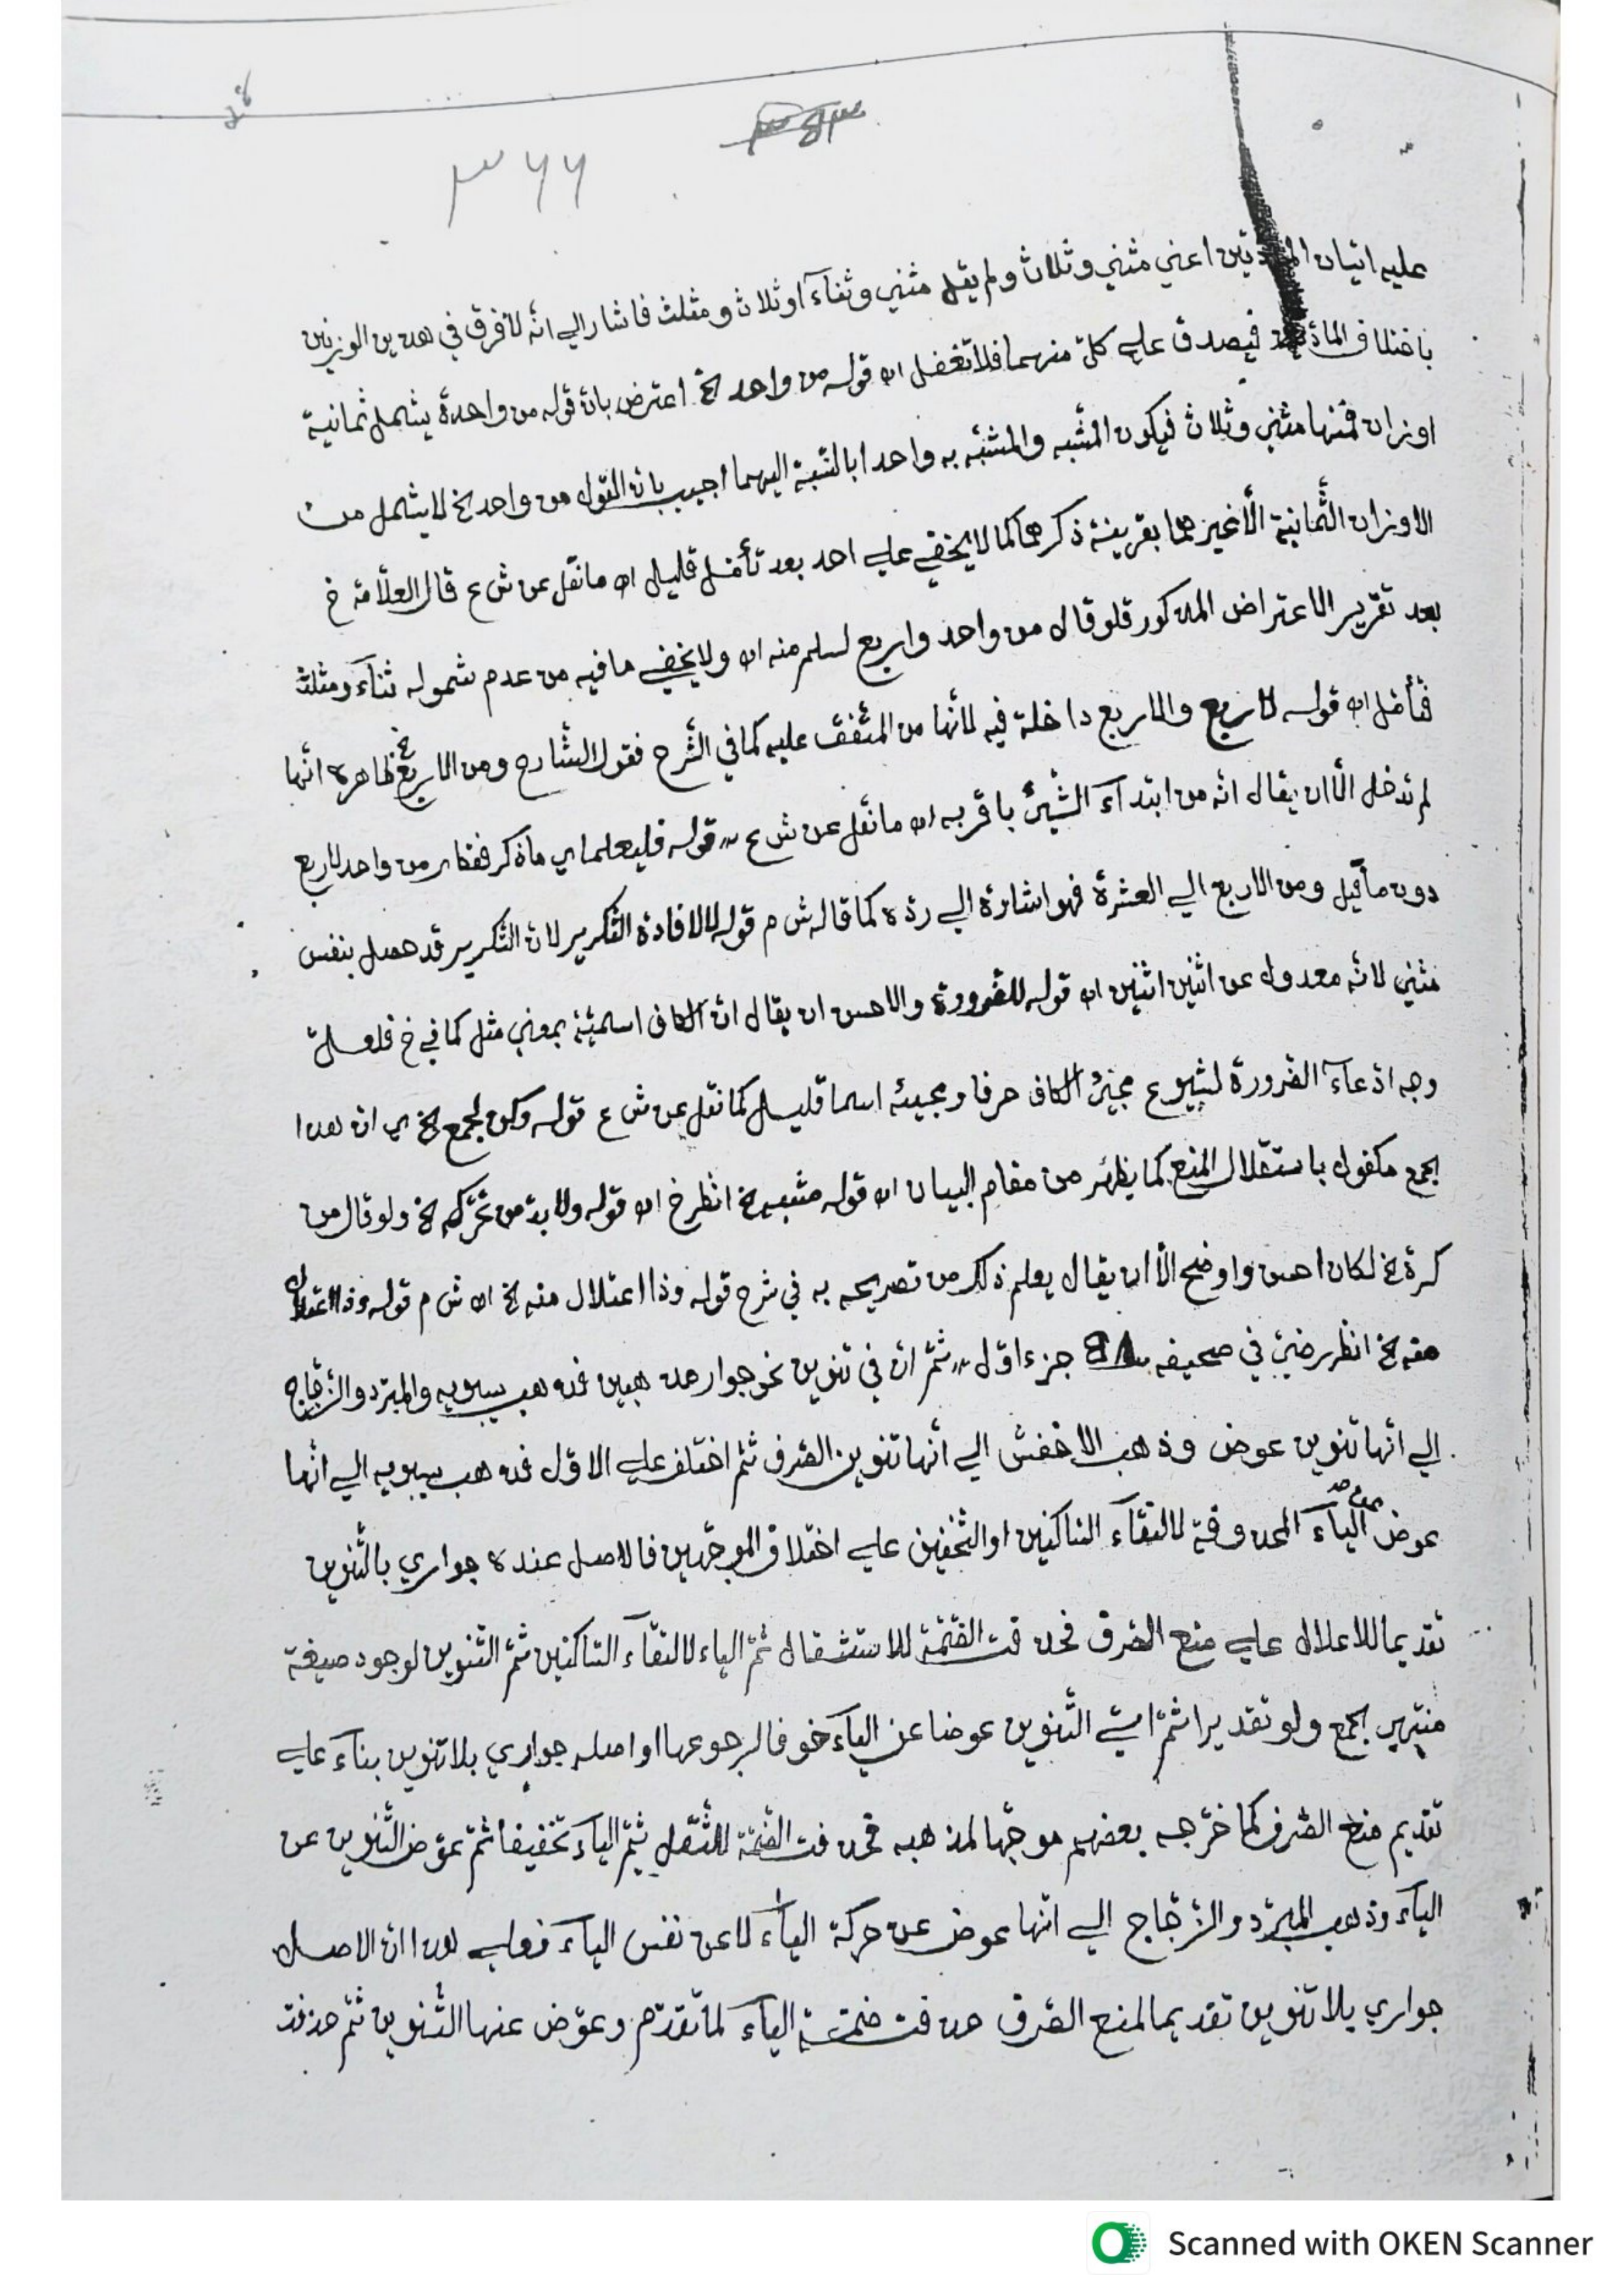 ٣٦٦
عليه اتيان اعني مثني وثلاث ولم يقل مثني وثنآء او ثلاث ومثلث فاشار الي انّه لا فرق في هذين الوزنين
باختلاف فيصدق علي كلّ منهما فلا تغفل اه قوله من واحد الخ اعترض بانّ قوله من واحدة يشمل ثمانية
اوزان فمنها مثني وثلاث فيكون المشبه والمشبّه به واحدا بالنّسبة اليهما اجيب بانّ القول من واحد الخ لا يشمل من
الاوزان الثّمانية الّا غيرهما بقرينة ذكرهما كما لا يخفي علي احد بعد تأمّل قليل اه ما نقل عن ش ع قال العلّامة خ
بعد تقرير الاعتراض المذكور فلو قال من واحد واربع لسلم منه اه ولا يخفي ما فيه من عدم شموله ثنآء ومثلث
فتأمّل اه قوله لاربع والاربع داخلة فيه لانّها من المتّفق عليه كما في الشّرح فقول الشّارح ومن الاربع الخ ظاهره انّها
لم تدخل الّا ان يقال انّه من ابتدآء الشّيئ باقربه اه ما نقل عن ش ع قوله فليعلما اي ما ذكر فقط من واحد لاربع
دون ما قيل ومن الاربع الي العشرة فهو اشارة الي ردّه كما قاله ش م قوله لا لافادة التّكرير لانّ التّكرير قد حصل بنفس
مثني لانّه معدول عن اثنين اثنين اه قوله للضرورة والاحسن ان يقال انّ الكاف اسميّة بمعني مثل كما في خ فلعلّ
وجه ادّعآء الضّرورة لشيوع مجيئ الكاف حرفا ومجيئه اسما قليل كما نقل عن ش ع قوله وكن لجمع الخ اي انّ هذا
الجمع مكفول باستقلال المنع كما يظهر من مقام البيان اه قوله مشبه الخ انظر خ اه قوله ولا بدّ من تحرّكه الخ ولو قال من
كسرة الخ لكان احسن واوضح الّا ان يقال يعلم ذلك من تصريحه به في شرح قوله وذا اعتلال منه الخ اه ش م قوله وذا اعتلال
منه الخ انظر رضيّ في صحيفه جزء اوّل ثمّ انّ في تنوين نحو جوار مذهبين فذهب سيبويه والمبرّد والزّجّاج
الي انّها تنوين عوض وذهب الاخفش الي أنّها تنوين الصّرف ثمّ اختلف علي الاوّل فذهب سيبويه الي انّها
عوض عن اليآء المحذوفة لالتقآء السّاكنين او التّخفيف علي اختلاف الموجّهين فالاصل عنده جواري بالتّنوين
تقديما للاعلال علي منع الصّرف فحذفت الضّمّة للاستثقال ثمّ الياء لالتقآء السّاكنين ثمّ التّنوين لوجود صيغة
منتهي الجمع ولو تقديرا ثمّ اتي التّنوين عوضا عن اليآء خوفا لرجوعها او اصله جواري بلا تنوين بنآء علي
تقديم منع الصّرف كما خرّجه بعضهم موجّها لمذهبه فحذفت الضّمّة للثّقل ثمّ اليآء تخفيفا ثمّ عوّض التّنوين عن
اليآء وذهب المبرّد والزّجّاج الي انّها عوض عن حركة اليآء لا عن نفس اليآء فعلي هذا انّ الاصل
جواري بلا تنوين تقديما لمنع الصّرف حذفت ضمّة اليآء لما تقدّم وعوّض عنها التّنوين ثمّ حذفت
Scanned with OKEN Scanner